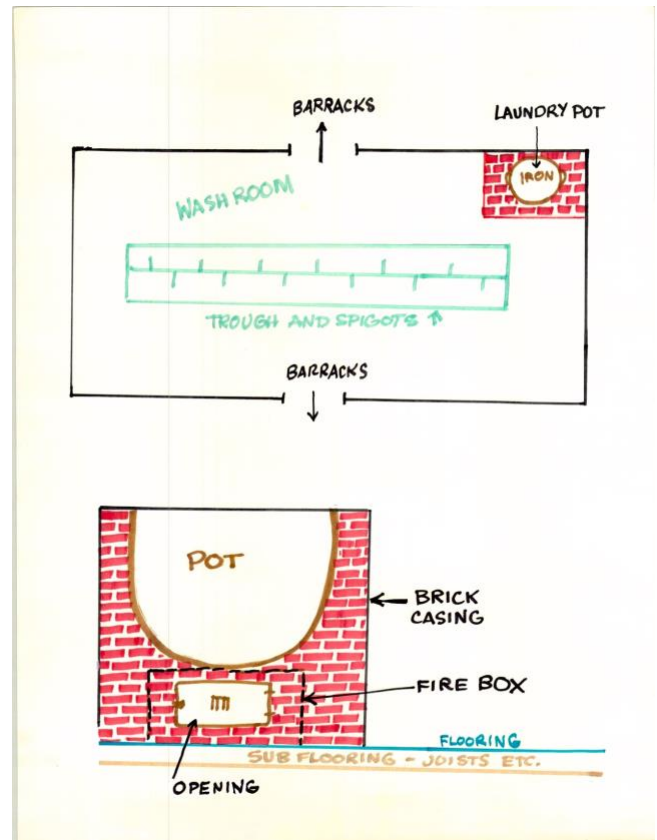 BARRACKS
LAUNDRY POT
IRON
WASH ROOM
TROUGH AND SPIGOTS
BARRACKS
POT
BRICK
CASING
FIRE BOX
FLOORING
SUB FLOORING - JOISTS ETC.
OPENING